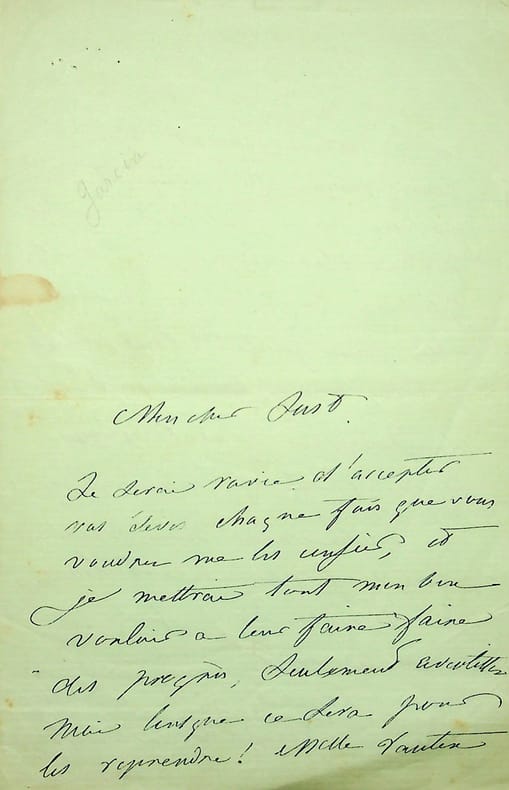 Garcia
Mon cher Just.
Je serai ravie d'accepter
vos élèves chaque fois que vous
voudrez me les confier, et
je mettrai tout mon bon
vouloir a leur faire faire
des progrès, seulement avertissez
moi lorsque ce sera pour
les reprendre! Melle